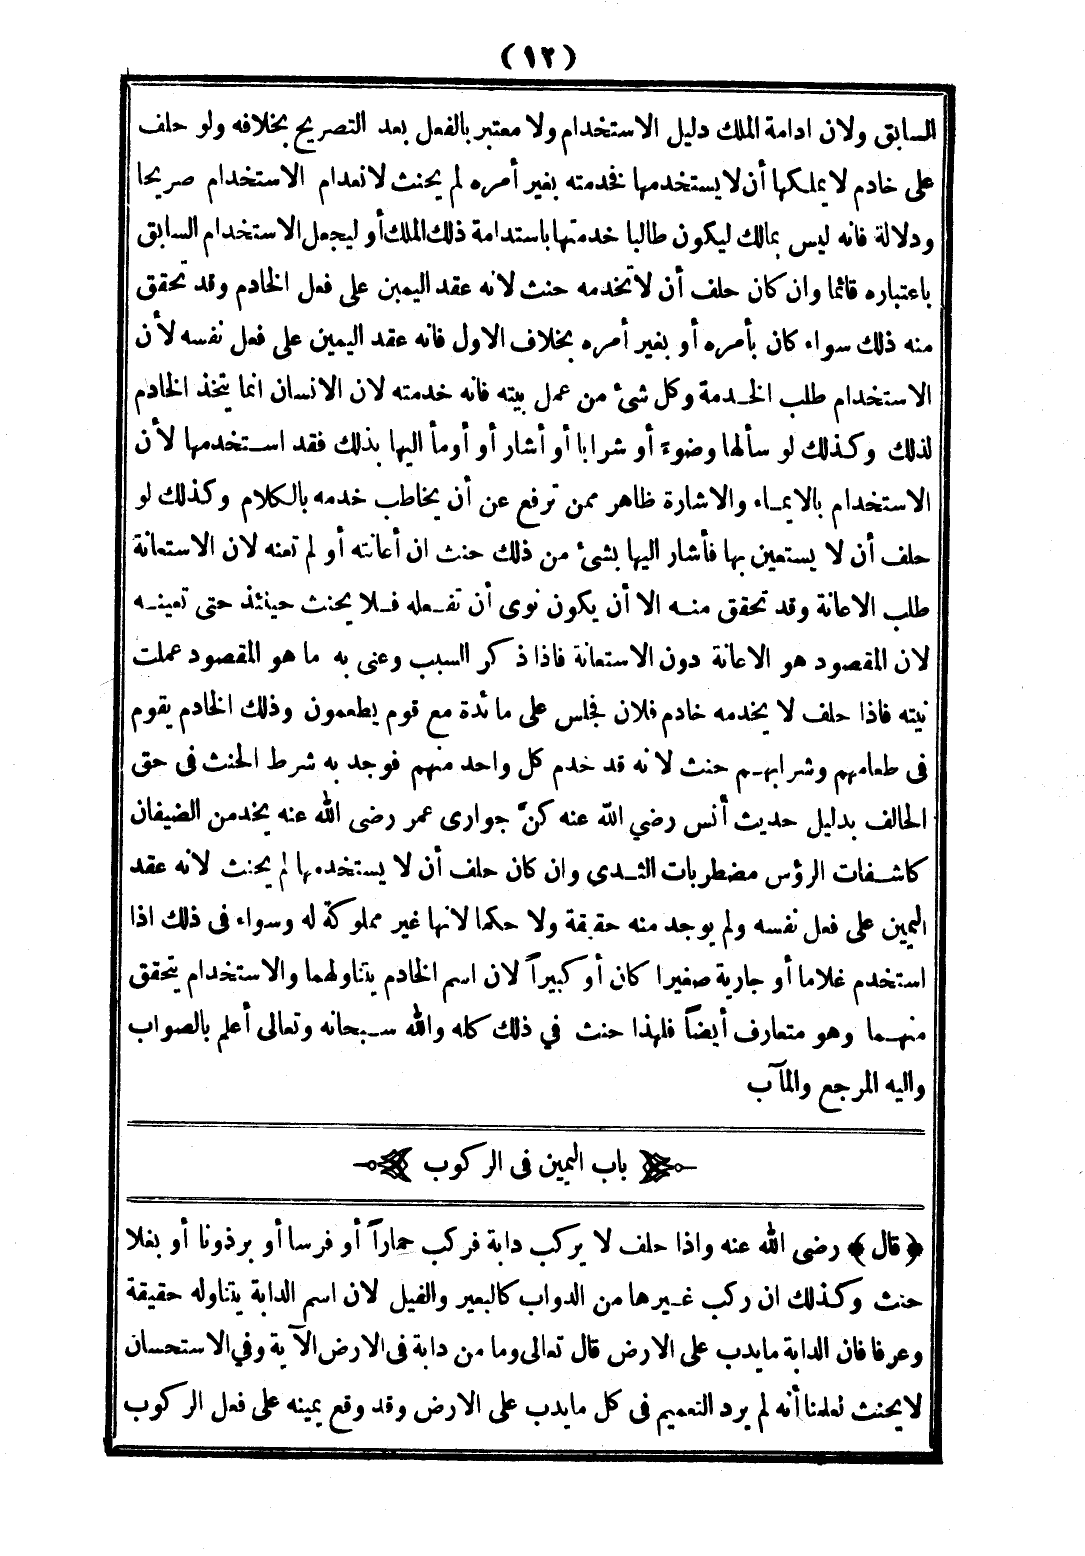 (١٢)
السابق ولان ادامة الملك دليل الاستخدام ولا معتبر بالفعل بعد التصريح بخلافه ولو حلف
على خادم لا يملكها أن لا يستخدمها فخدمته بغير أمره لم يحنث لانعدام الاستخدام صريحا
ودلالة فانه ليس بمالك ليكون طالبا خدمتها باستدامة ذلك الملك أو ليجعل الاستخدام السابق
باعتباره قائما وان كان حلف أن لا تخدمه حنث لانه عقد اليمين على فعل الخادم وقد تحقق
منه ذلك سواء كان بأمره أو بغير أمره بخلاف الاول فانه عقد اليمين على فعل نفسه لأن
الاستخدام طلب الخدمة وكل شئ من عمل بيته فانه خدمته لان الانسان انما يتخذ الخادم
لذلك وكذلك لو سألها وضوءً أو شرابا أو أشار أو أومأ اليها بذلك فقد استخدمها لأن
الاستخدام بالايماء والاشارة ظاهر ممن ترفع عن أن يخاطب خدمه بالكلام وكذلك لو
حلف أن لا يستعين بها فأشار اليها بشئ من ذلك حنث ان أعانته أو لم تعنه لان الاستعانة
طلب الاعانة وقد تحقق منه الا أن يكون نوى أن تفعله فلا يحنث حينئذ حتى تعينه
لان المقصود هو الاعانة دون الاستعانة فاذا ذكر السبب وعنى به ما هو المقصود عملت
نيته فاذا حلف لا يخدمه خادم فلان فجلس على مائدة مع قوم يطعمون وذلك الخادم يقوم
فى طعامهم وشرابهم حنث لانه قد خدم كل واحد منهم فوجد به شرط الحنث فى حق
الحالف بدليل حديث أنس رضي الله عنه كنّ جوارى عمر رضى الله عنه يخدمن الضيفان
كاشفات الرؤس مضطربات الثدى وان كان حلف أن لا يستخدمها لم يحنث لانه عقد
اليمين على فعل نفسه ولم يوجد منه حقيقة ولا حكما لانها غير مملوكة له وسواء فى ذلك اذا
استخدم غلاما أو جارية صغيرا كان أو كبيراً لان اسم الخادم يتناولهما والاستخدام يتحقق
منهما وهو متعارف أيضاً فلهذا حنث في ذلك كله والله سبحانه وتعالى أعلم بالصواب
واليه المرجع والمآب
باب اليمين فى الركوب
﴿قال﴾ رضى الله عنه واذا حلف لا يركب دابة فركب حماراً أو فرسا أو برذونا أو بغلا
حنث وكذلك ان ركب غيرها من الدواب كالبعير والفيل لان اسم الدابة يتناوله حقيقة
وعرفا فان الدابة ما يدب على الارض قال تعالى وما من دابة فى الارض الآية وفي الاستحسان
لا يحنث لعلمنا أنه لم يرد التعميم فى كل ما يدب على الارض وقد وقع يمينه على فعل الركوب